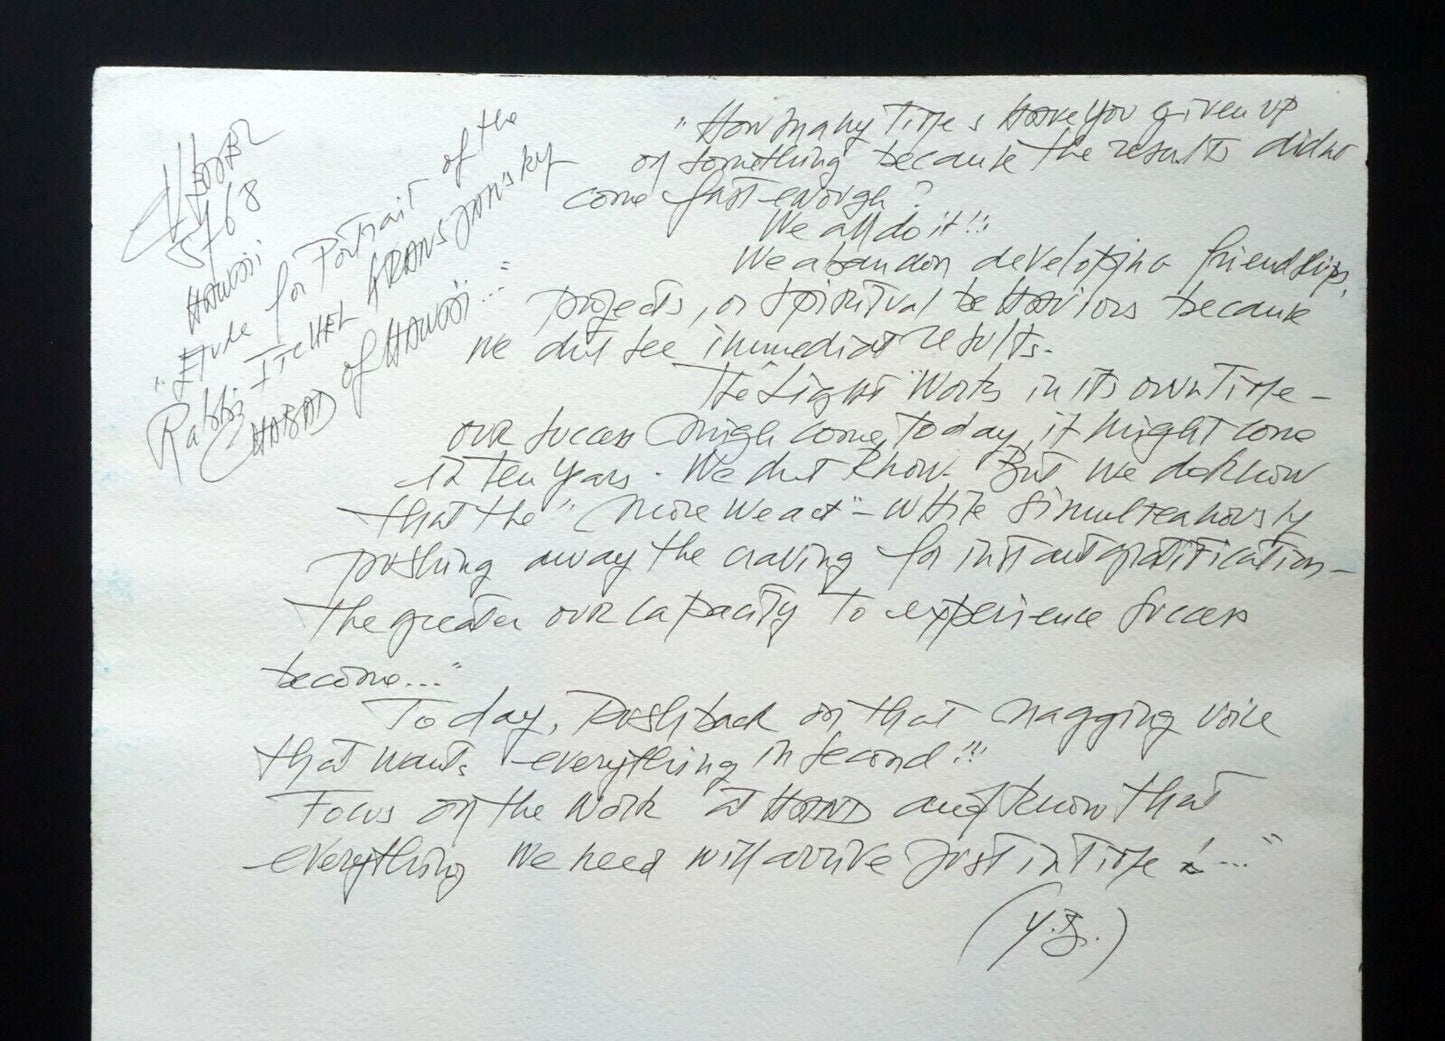 5768
Hawaii
"Etude for Portrait of the
Rabbi ITCHEL KRANSJANSKY
CHABAD of HAWAii..."
"How many Times Have you given up
on something because the results didnt
come fast enough?
We all do it!!
We abandon developing friendships,
projects, or spiritual behaviors because
we dnt see immediat results.
The "Light" Works in its own Time –
our success might come today, it might come
in Ten years. We dnt know. But we do know
that the "more we act" – while simultaneously
pushing away the craving for instant gratification –
the greater our capacity to experience success
become..."
Today, Push back on that nagging voice
that wants everything in second!!!
Focus on the Work at HAND and know that
everything we need will arrive just in Time !..."
(Y.B.)